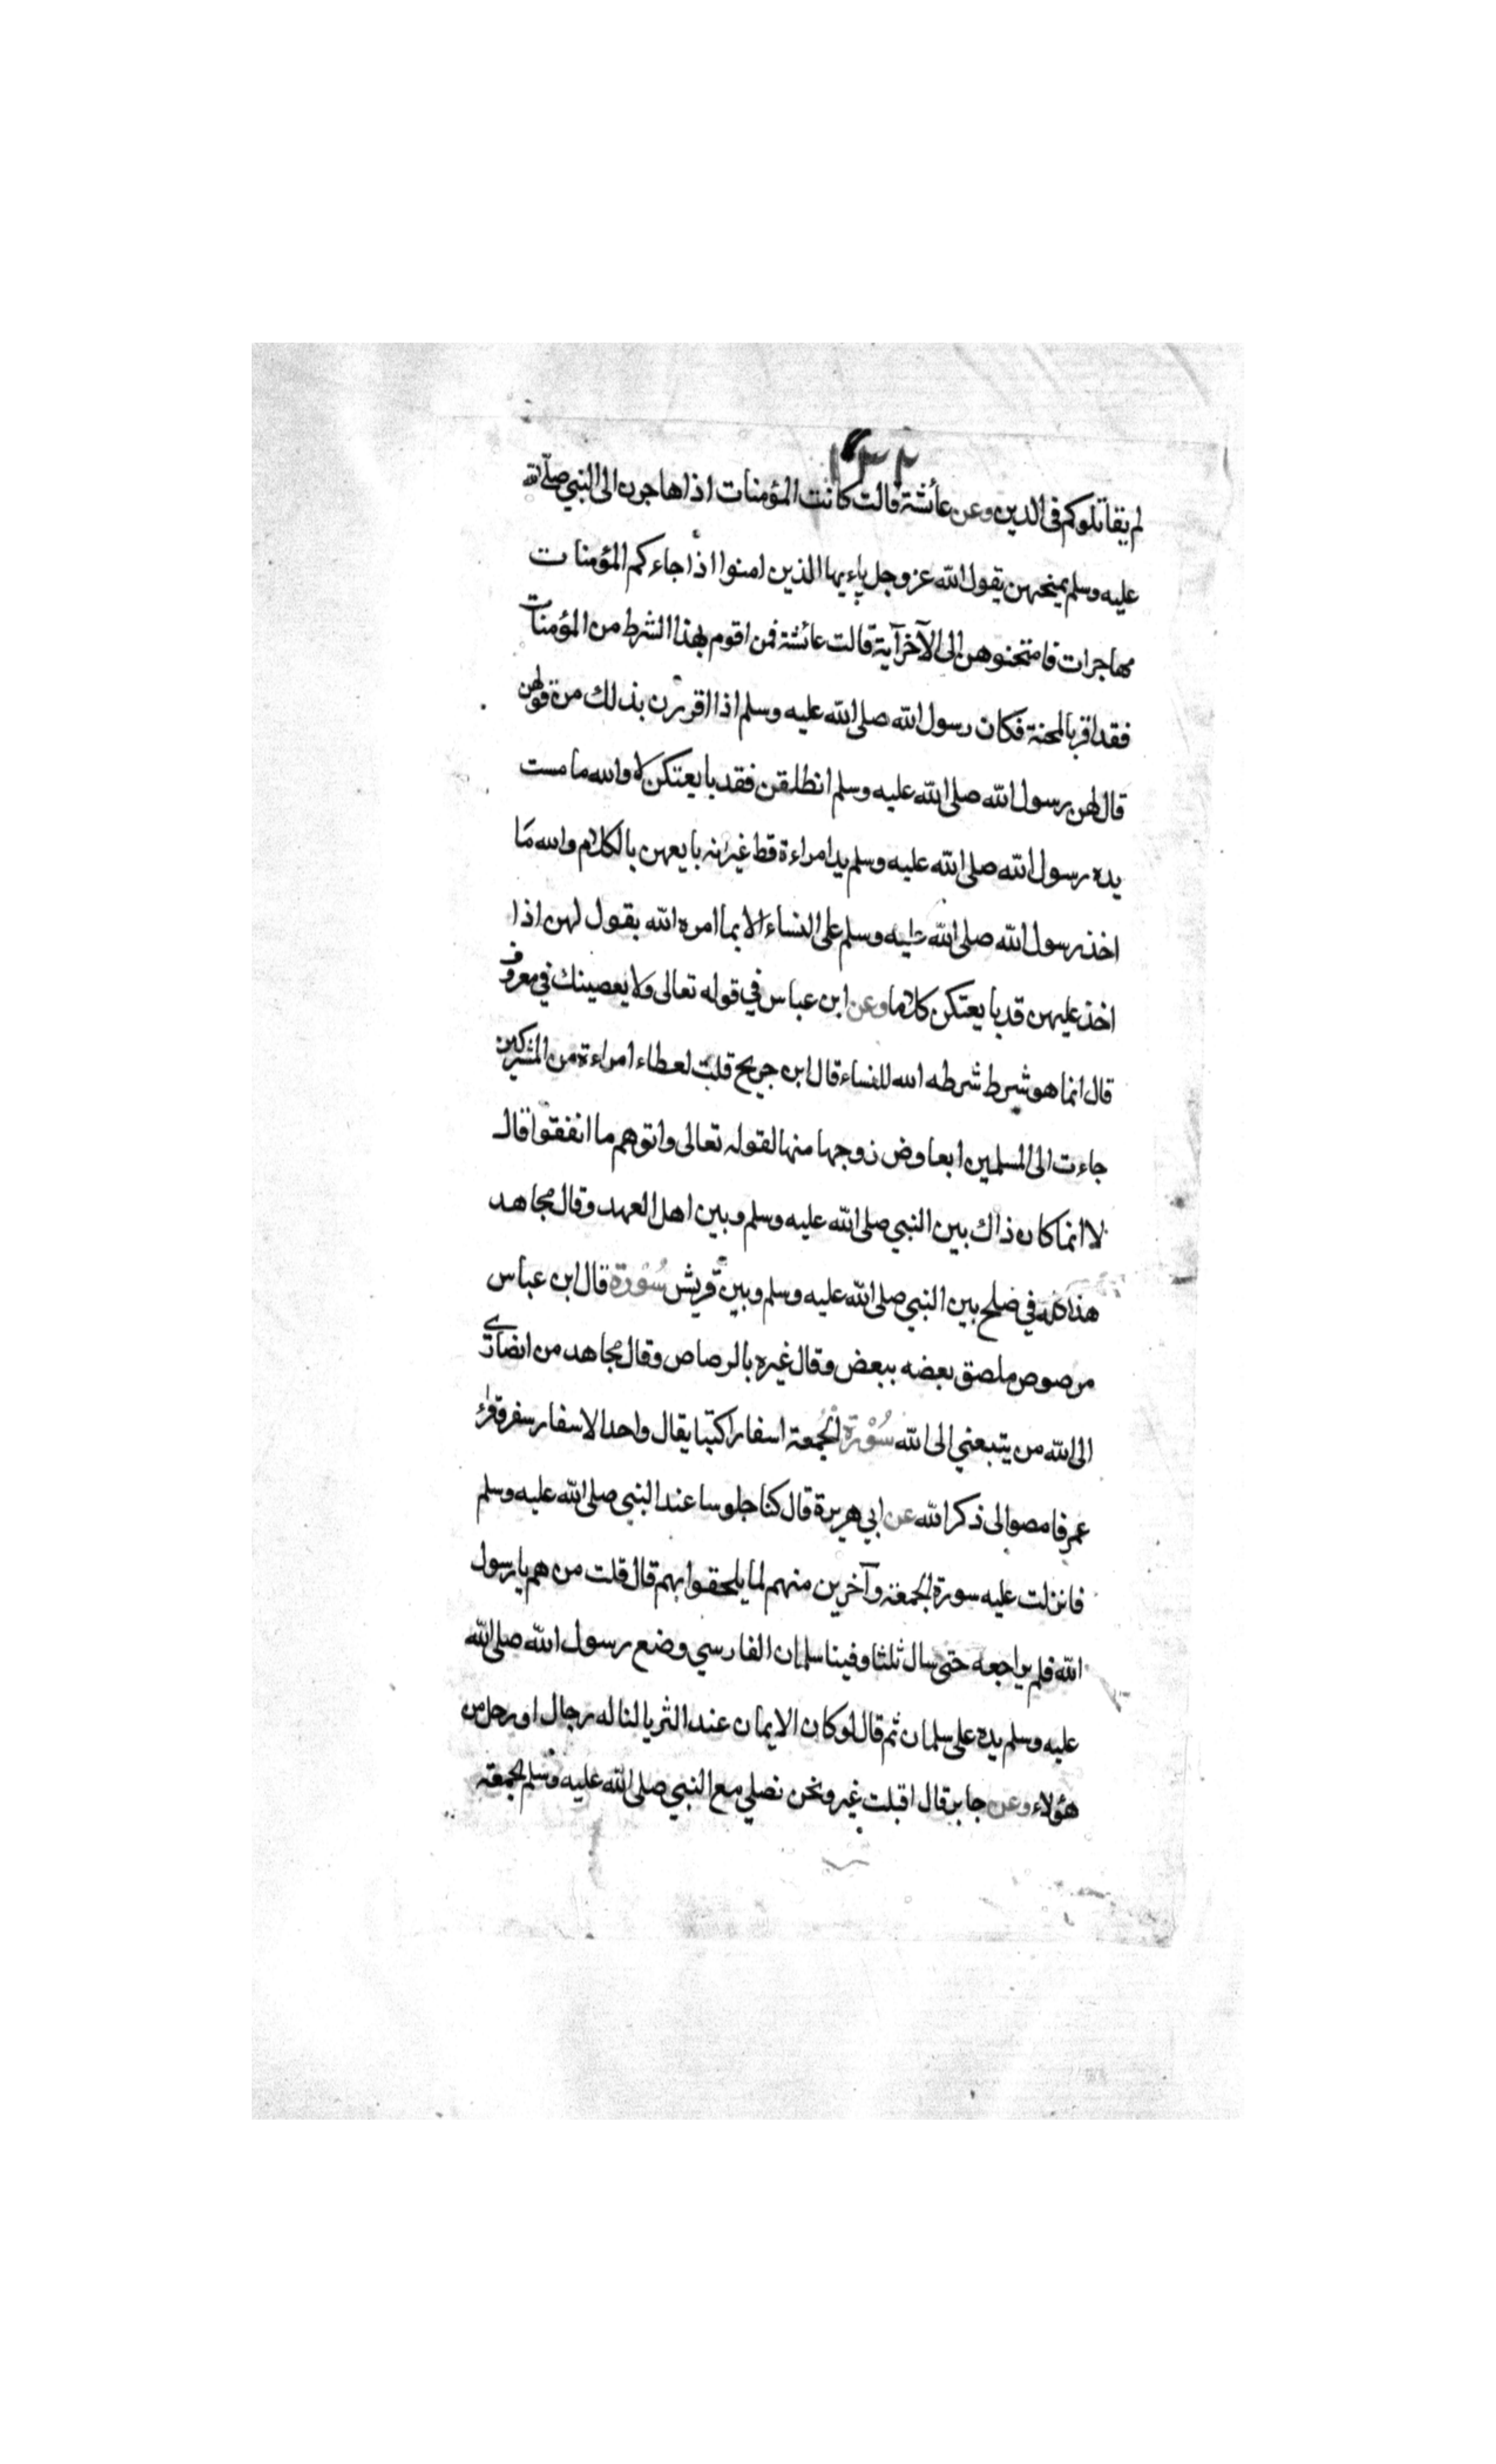 ١٣٢
لم يقاتلوكم في الدين وعن عائشة قالت كانت المؤمنات اذا هاجرن الى النبي صلى الله
عليه وسلم يمتحنهن يقول الله عز وجل ياءيها الذين امنوا اذا جاءكم المؤمنات
مهاجرات فامتحنوهن الى الآخر آية قالت عائشة فمن اقر بهذا الشرط من المؤمنات
فقد اقر بالمحنة فكان رسول الله صلى الله عليه وسلم اذا اقررن بذلك من قولهن
قال لهن رسول الله صلى الله عليه وسلم انطلقن فقد بايعتكن لا والله ما مست
يده رسول الله صلى الله عليه وسلم يد امراءة قط غير انه بايعهن بالكلام والله ما
اخذ رسول الله صلى الله عليه وسلم على النساء الا بما امره الله يقول لهن اذا
اخذ عليهن قد بايعتكن كلاما وعن ابن عباس في قوله تعالى ولا يعصينك في معروف
قال انما هو شرط شرطه الله للنساء قال ابن جريج قلت لعطاء امراءة من المشركين
جاءت الى المسلمين ايعاوض زوجها منها لقوله تعالى واتوهم ما انفقوا قال
لا انما كان ذاك بين النبي صلى الله عليه وسلم وبين اهل العهد وقال مجاهد
هذا كله في صلح بين النبي صلى الله عليه وسلم وبين قريش سورة قال ابن عباس
مرصوص ملصق بعضه ببعض وقال غيره بالرصاص وقال مجاهد من انصاري
الى الله من يتبعني الى الله سورة الجمعة اسفارا كتبا يقال واحد الاسفار سفر وقرء
عمر فامضوا الى ذكر الله عن ابي هريرة قال كنا جلوسا عند النبي صلى الله عليه وسلم
فانزلت عليه سورة الجمعة وآخرين منهم لما يلحقوا بهم قال قلت من هم يا رسول
الله فلم يراجعه حتى سال ثلثا وفينا سلمان الفارسي وضع رسول الله صلى الله
عليه وسلم يده على سلمان ثم قال لو كان الايمان عند الثريا لناله رجال او رجل من
هؤلاء وعن جابر قال اقبلت عير ونحن نصلي مع النبي صلى الله عليه وسلم الجمعة